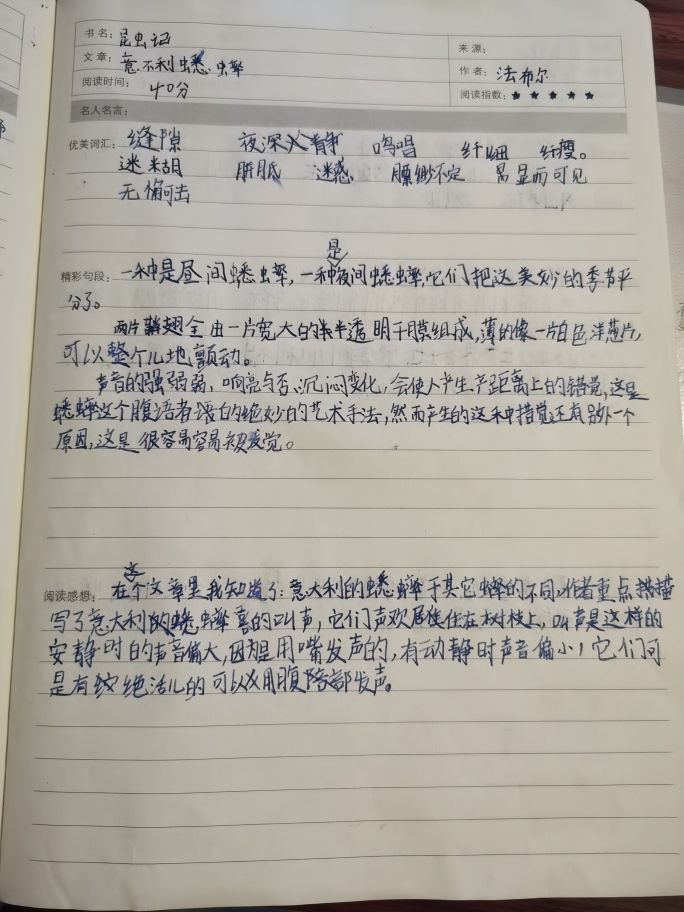 书名: 昆虫记
来源:
文章: 意大利蟋蟀
作者: 法布尔
阅读时间: 40分
阅读指数: ★ ★ ★ ★ ★
名人名言:
优美词汇: 缝隙 夜深人静 鸣唱 纤细 纤瘦。
迷糊 胼胝 迷惑 飘缈不定 显而可见
无懈可击
是
精彩句段: 一种是昼间蟋蟀,一种夜间蟋蟀,它们把这美妙的季节平
分了。
两片鞘翅全由一片宽大的半透明干膜组成,薄的像一片白色洋葱片,
可以整个儿地颤动。
声音的强弱,响亮与否,沉闷变化,会使人产生距离上的错觉,这是
蟋蟀这个腹语者的绝妙的艺术手法,然而产生的这种错觉还有别外一个
原因,这是很容易容易被发觉。
这
阅读感想: 在个文章里我知道了:意大利的蟋蟀于其它蟀的不同,作者重点描
写了意大利的蟋蟀的叫声,它们喜欢居住在树枝上,叫声是这样的
安静时的声音偏大,因为是用嘴发声的,有动静时声音偏小,它们可
是有绝活儿的可以用腹部发声。